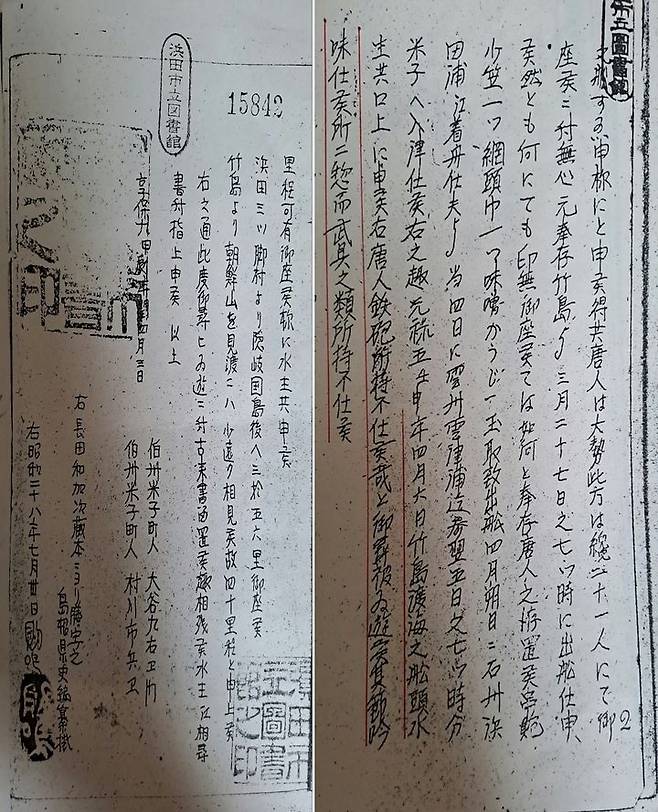 市立圖書館
座候ニ付無心元奉存竹島ゟ三月二十七日之七ツ時に出船仕申
候然とも何にても印無御座候ては如何と奉存唐人之拵置候串鮑
少笠一ツ網頭巾一ツ味噌かうじ一玉取致出船四月朔日ニ石州浜
田浦江着舟仕夫ゟ当四日に雲州雲津浦迄参翌五日之七ツ時分
米子へ入津仕候右之趣元禄五年申年四月六日竹島渡海之船頭水
主共口上に申候右唐人鉄砲所持不仕候哉と御尋被為遊候具敷吟
味仕候所ニ惣而武具之類所持不仕候
2
浜田市立図書館
15842
里程可有御座候様に水主共申候
浜田三ツ脚村より隠岐国島後へ三拾五六里御座候
竹島より朝鮮山を見渡ニハ少遠ク相見候故四十里程と申上候
右之通此度御尋ヒ為遊ニ付古来書函置候趣相残候水主江相尋
書付指上申候 以上
享保九甲辰年閏四月三日
伯州米子町人 大谷九右卫门
伯州米子町人 村川市兵卫
右長田和加次蔵本ニヨリ謄写之
島根県史編纂掛
右昭和二十八年七月廿日
浜田市立圖書館之印